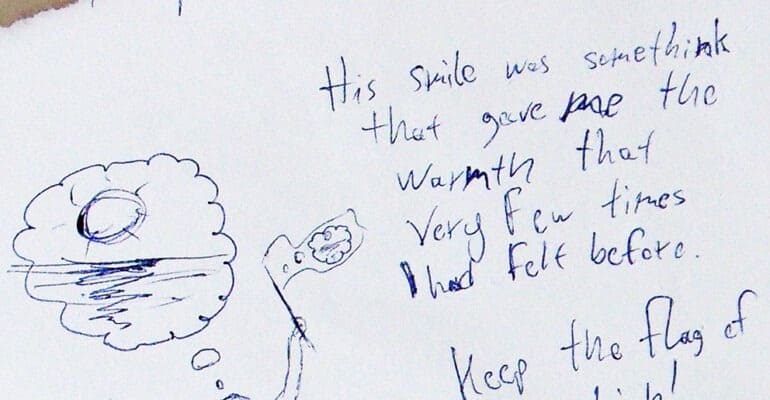 His smile was somethink
that gave me the
warmth that
very few times
I had felt before.
Keep the flag of